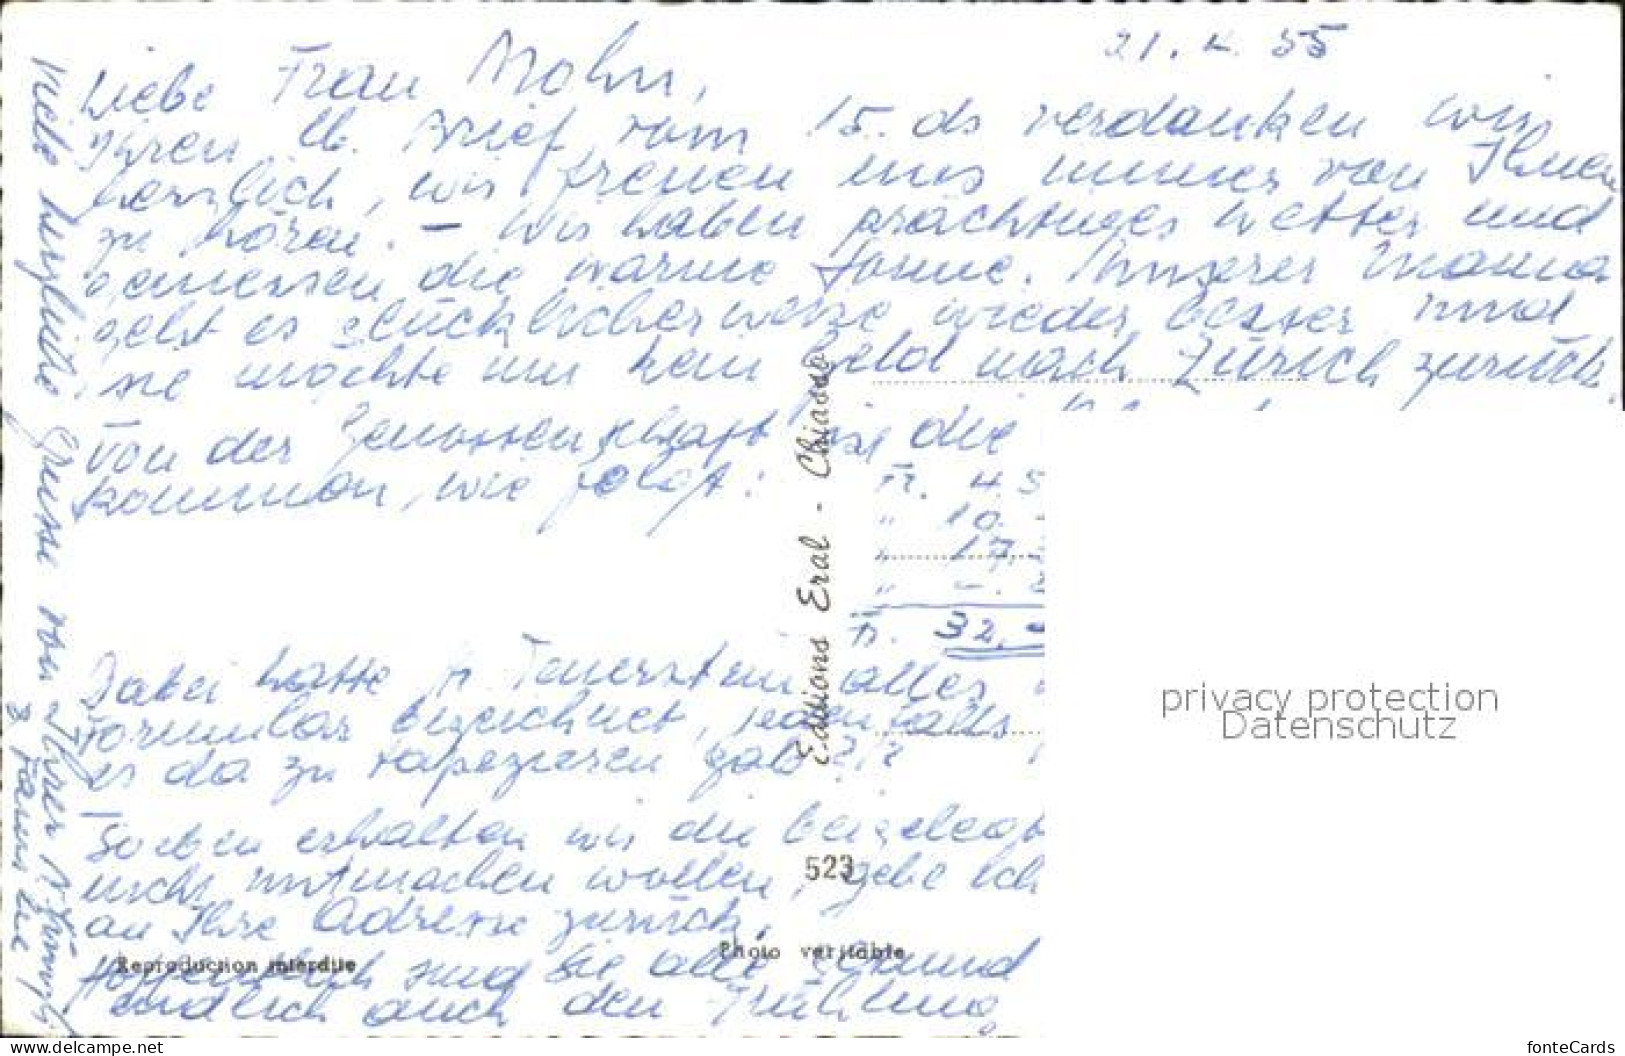 21. 4. 55
Liebe Frau Mohn,
Ihren lb. Brief vom 15. ds verdanken wir
herzlich, wir freuen uns immer von Ihnen
zu hören. – Wir haben prächtiges Wetter und
geniessen die warme Sonne. Unserer Mama
geht es glücklicherweise wieder besser und
sie möchte nur kein Geld nach Zürich zurück.
Von der Genossenschaft ist die
kommen, wie folgt:
Fr. 4.5
" 10.
" 17.
" -.
Fr. 32.-
Dabei hatte Feuerstein alles
Formular bezeichnet, jedenfalls
es da zu tapezieren gab ?!?
Soeben erhalten wir die beigelegt
nicht mitmachen wollen, gebe ich
an Ihre Adresse zurück.
Hoffentlich sind Sie alle gesund
endlich auch den Frühling
Viele herzliche Grüsse von Ihrer
Editions Eral - Chiasso
523
Reproduction interdite
Photo veritable
privacy protection
Datenschutz
www.delcampe.net
fonteCards